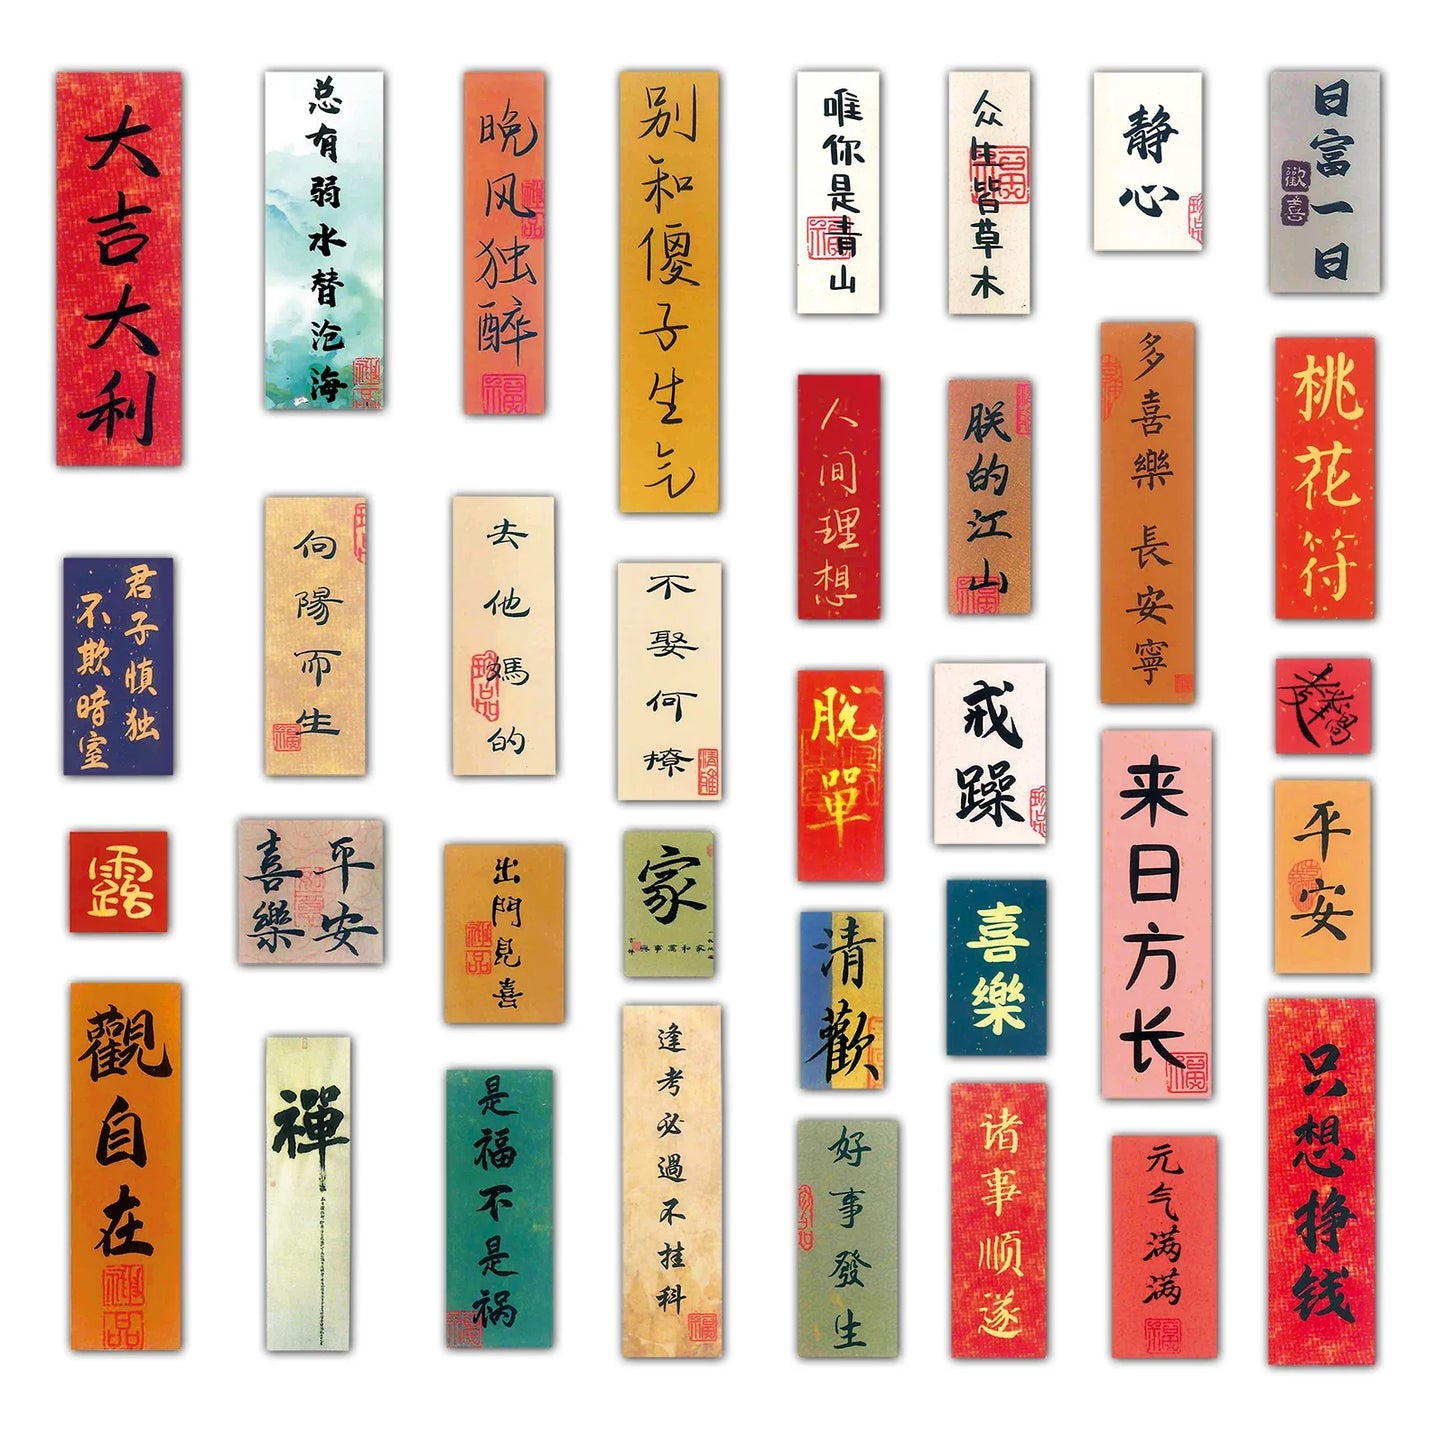 大吉大利
总有弱水替沧海
晚风独醉
别和傻子生气
唯你是青山
众生皆草木
静心
日富一日
歡喜
人间理想
朕的江山
多喜樂 長安寧
桃花符
君子慎独
不欺暗室
向陽而生
去他媽的
不娶何撩
脱單
戒躁
来日方长
平安
露
平安
喜樂
出門見喜
家
家和萬事興
清歡
喜樂
觀自在
禪
是福不是祸
逢考必過不挂科
好事發生
诸事顺遂
元气满满
只想挣钱